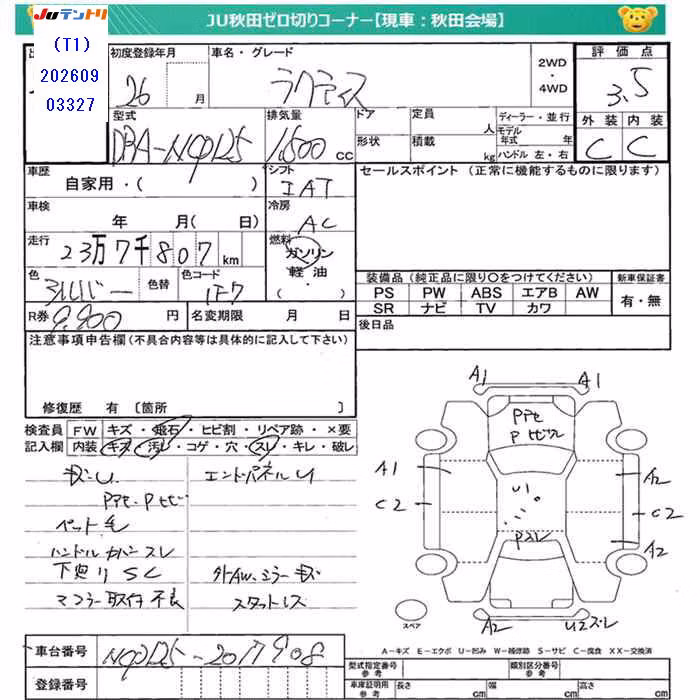 JUテントリ
JU秋田ゼロ切りコーナー【現車：秋田会場】
(T1)
202609
03327
初度登録年月
26 月
車名・グレード
ラクティス
2WD
・
4WD
評価点
3.5
外装 内装
C C
型式
DBA-NCP125
排気量
1,500 cc
ドア
形状
定員 人
積載 kg
ディーラー・並行
モデル年式 年
ハンドル 左・右
車歴
自家用・( )
シフト
IAT
セールスポイント（正常に機能するものに限ります）
車検
年 月( 日)
冷房
AC
走行
23万7千807km
燃料
ガソリン
軽油
・( )
色
シルバー
色替
色コード
1F7
装備品（純正品に限り○をつけてください）
PS PW ABS エアB AW
SR ナビ TV カワ
新車保証書
有・無
R券 9,900 円
名変期限 月 日
後日品
注意事項申告欄(不具合内容等は具体的に記入して下さい)
修復歴 有 〔箇所 〕
検査員 FW キズ・飛石・ヒビ割・リペア跡・×要
記入欄 内装 キズ・汚レ・コゲ・穴・スレ・キレ・破レ
エンドパネルU
Pアセ・Pヒビ
ペット毛
ハンドルカバースレ
下廻りSC
外AW、ミラーキズ
マフラー取付不良
スタットレス
A1 A1
Pアセ
Pヒビワレ
A1 A2
U1。
C2 C2
Pスレ
A2
A2 U2ズレ
スペア
A－キズ E－エクボ U－凹み W－補修跡 S－サビ C－腐食 XX－交換済
車台番号 NCP125-2017908
登録番号
型式指定番号
参考
類別区分番号
参考
車庫証明用
参考
長さ cm
幅 cm
高さ cm